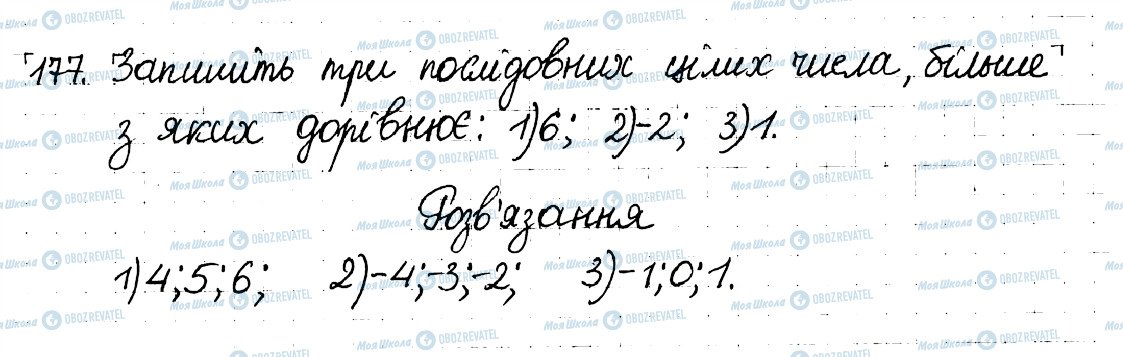 177. Запишіть три послідовних цілих числа, більше
з яких дорівнює: 1) 6; 2) -2; 3) 1.
Розв'язання
1) 4; 5; 6; 2) -4; -3; -2; 3) -1; 0; 1.